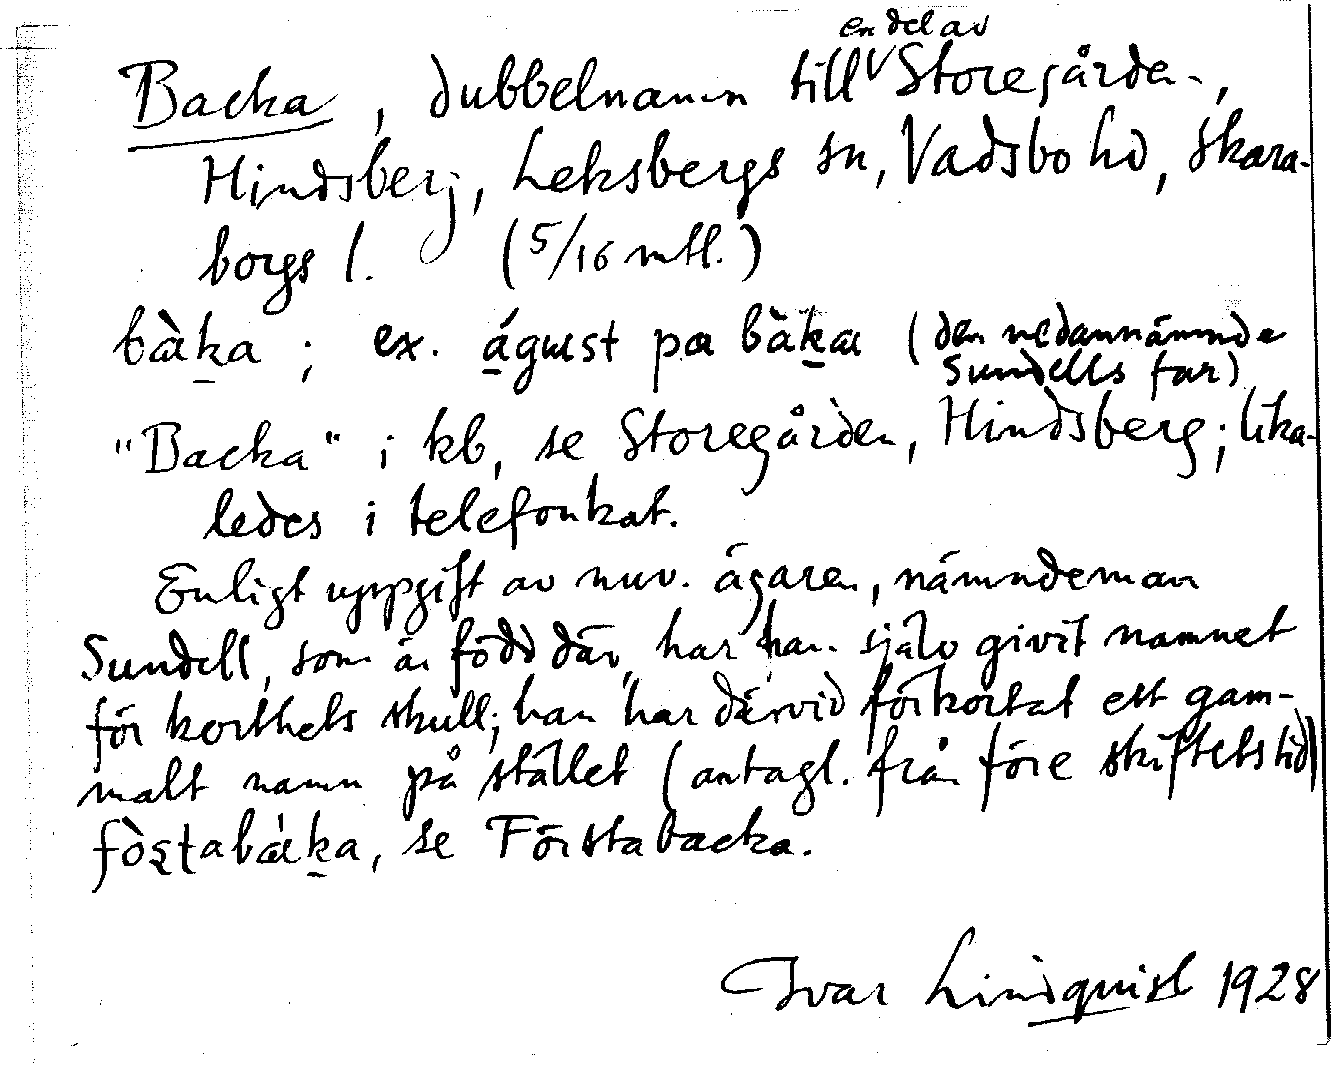 en del av
Backa, dubbelnamn till V Storegården,
Hindsberg, Leksbergs sn, Vadsbo hd, Skara-
borgs l. (5/16 mtl.)
bàḵa ; ex. á̱gust pa bàḵa (den nedannämnde
Sundells far)
"Backa" i kb, se Storegården, Hindsberg; lika-
ledes i telefonkat.
Enligt uppgift av nuv. ägaren, nämndeman
Sundell, som är född där, har han själv givit namnet
för korthets skull; han har därvid förkortat ett gam-
malt namn på stället (antagl. från före skiftets tid)
fò̱stabàḵa, se Förstabacka.
Ivar Lindquist 1928